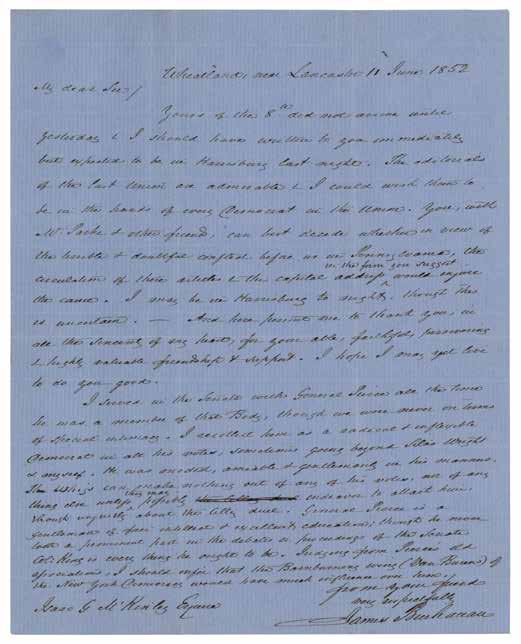 Wheatland, near Lancaster 11 June 1852
My dear Sir/
Yours of the 8th did not arrive until
yesterday & I should have written to you immediately
but expected to be in Harrisburg last night. The editorials
of the last Union are admirable & I could wish them to
be in the hands of every Democrat in the Union. You, with
Mr. Packer & other friends, can best decide whether in view of
the terrible & doubtful conflict before us in Pennsylvania, the
circulation of these articles & the capital address in the form you suggest would injure
the cause. I may be in Harrisburg to night, though this
is uncertain. — And here permit me to thank you, in
all the sincerity of my heart, for your able, faithful, persevering
& highly valuable friendship & support. I hope I may yet live
to do you good.
I served in the Senate with General Pierce all the time
he was a member of that Body, though we were never on terms
of special intimacy. I recollect him as a radical & inflexible
Democrat in all his votes, sometimes going beyond Silas Wright
& myself. He was modest, amiable & gentlemanly in his manners.
The Whigs can make nothing out of any of his votes, nor of any
thing else unless possibly they may endeavor to attack him,
though unjustly about the duel. General Pierce is a
gentleman of fair intellect & excellent education; though he never
took a prominent part in the debates or proceedings of the Senate
Col: King is every thing he ought to be. Judging from Pierce's old
associations, I should infer that the Barnburning wing (Van Buren's) of
the New York Democracy would have much influence over him.
from your friend
very respectfully
Isaac G. McKinley Esquire
James Buchanan